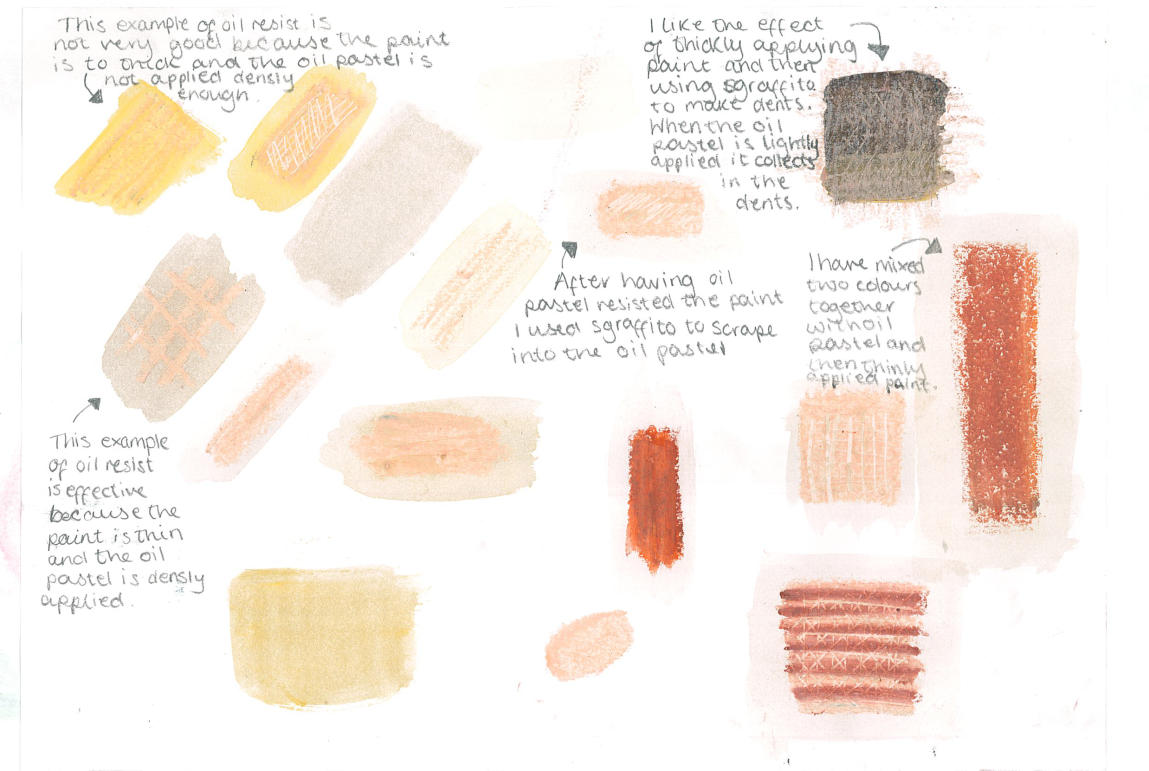 This example of oil resist is
not very good because the paint
is to thick and the oil pastel is
not applied densly
enough.
I like the effect
of thickly applying
paint and then
using sgraffito
to make dents.
When the oil
pastel is lightly
applied it collects
in the
dents.
After having oil
pastel resisted the paint
I used sgraffito to scrape
into the oil pastel
I have mixed
two colours
together
with oil
pastel and
then thinly
applied paint.
This example
of oil resist
is effective
because the
paint is thin
and the oil
pastel is densly
applied.